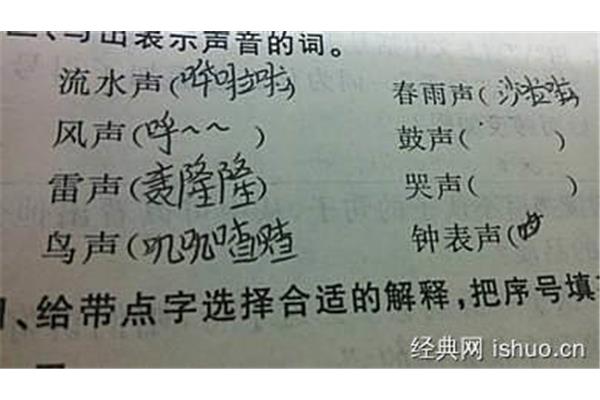 写出表示声音的词。
流水声(哗啦啦) 春雨声(沙啦啦
风声(呼~~ ) 鼓声( )
雷声(轰隆隆) 哭声( )
鸟声(叽叽喳喳 钟表声(
、给带点字选择合适的解释,把序号填
经典网 ishuo.cn